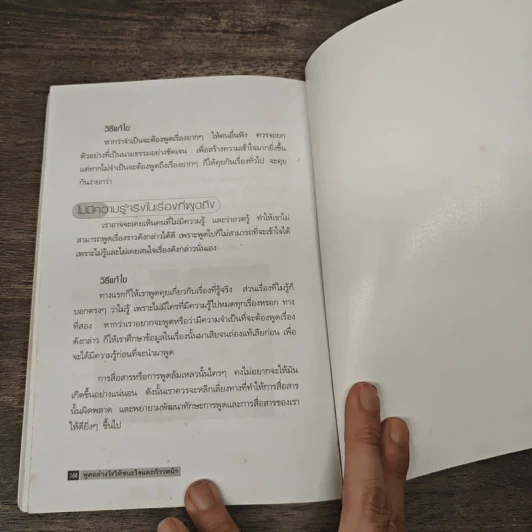 วิธีแก้ไข
หากว่าจำเป็นจะต้องพูดเรื่องยากๆ ให้คนอื่นฟัง ควรจะยก
ตัวอย่างที่เป็นนามธรรมอย่างชัดเจน เพื่อสร้างความเข้าใจมากยิ่งขึ้น
แต่หากไม่จำเป็นจะต้องพูดถึงเรื่องยากๆ ก็ให้คุยกันเรื่องทั่วไป จะคุย
กันง่ายกว่า
ไม่มีความรู้จริงในเรื่องที่พูดถึง
เราอาจจะเคยเห็นคนที่ไม่มีความรู้ และว่าอวดรู้ ทำให้เขาไม่
สามารถพูดเรื่องราวดังกล่าวได้ดี เพราะพูดไปก็ไม่สามารถที่จะเข้าใจได้
เพราะไม่รู้และไม่เคยสนใจเรื่องดังกล่าวนั่นเอง
วิธีแก้ไข
ทางแรกก็ให้เราพูดคุยเกี่ยวกับเรื่องที่รู้จริง ส่วนเรื่องที่ไม่รู้ก็
บอกตรงๆ ว่าไม่รู้ เพราะไม่มีใครที่มีความรู้ไปหมดทุกเรื่องหรอก ทาง
ที่สอง หากว่าเราอยากจะพูดหรือว่ามีความจำเป็นที่จะต้องพูดเรื่อง
ดังกล่าว ก็ให้เราศึกษาข้อมูลในเรื่องนั้นมาเสียจนถ่องแท้เสียก่อน เพื่อ
จะได้มีความรู้ก่อนที่จะนำมาพูด
การสื่อสารหรือการพูดล้มเหลวนั้นใครๆ คงไม่อยากจะให้มัน
เกิดขึ้นอย่างแน่นอน ดังนั้นเราควรจะหลีกเลี่ยงทางที่ทำให้การสื่อสาร
นั้นผิดพลาด และพยายามพัฒนาทักษะการพูดและการสื่อสารของเรา
ให้ดียิ่งๆ ขึ้นไป
พูดอย่างไรให้ชนะใจและก้าวหน้า